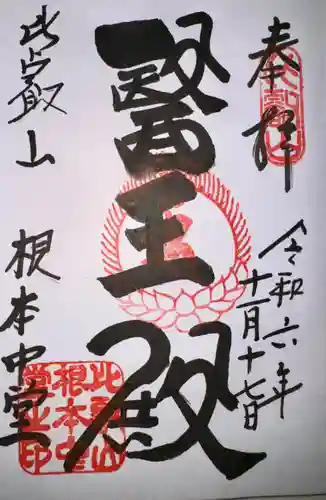 奉拝
令和六年
十一月十七日
醫王殿
比叡山
根本中堂
比叡山
根本中
堂之印